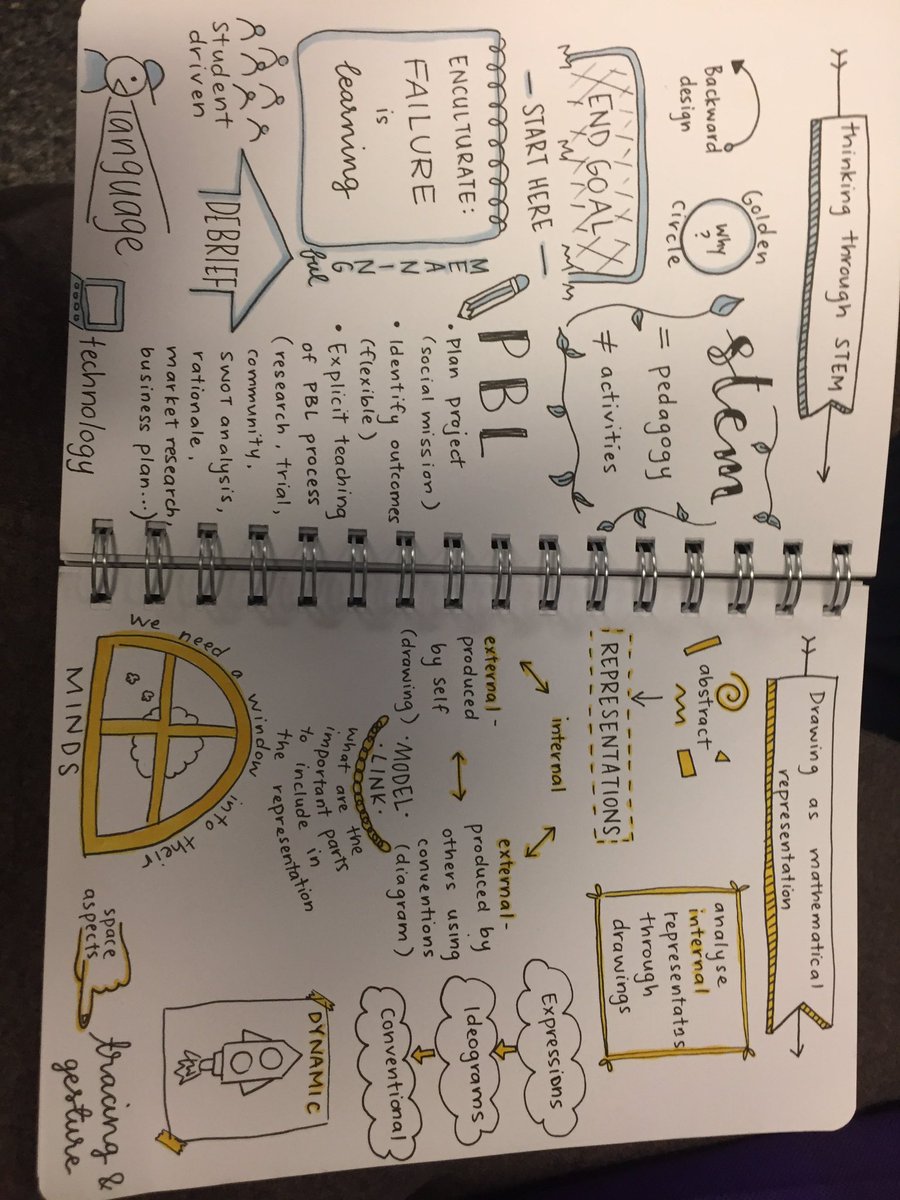 thinking through STEM
Backward
design
Golden
Why
?
circle
stem
= pedagogy
≠ activities
END GOAL
— START HERE —
PBL
• Plan project
(social mission)
• Identify outcomes
(flexible)
• Explicit teaching
of PBL process
(research, trial,
community,
SWOT analysis,
rationale,
market research,
business plan...)
ENCULTURATE:
FAILURE
is
learning
MEANING
ful
student
driven
DEBRIEF
language
technology
Drawing as mathematical
representation
abstract
REPRESENTATIONS
internal
external -
produced
by self
(drawing)
external -
produced by
others using
conventions
(diagram)
• MODEL •
• LINK •
what are the
important parts
to include in
the representation
analyse
internal
representatns
through
drawings
Expressions
Ideograms
conventional
we need a window into their
MINDS
DYNAMIC
space
aspects
tracing &
gesture